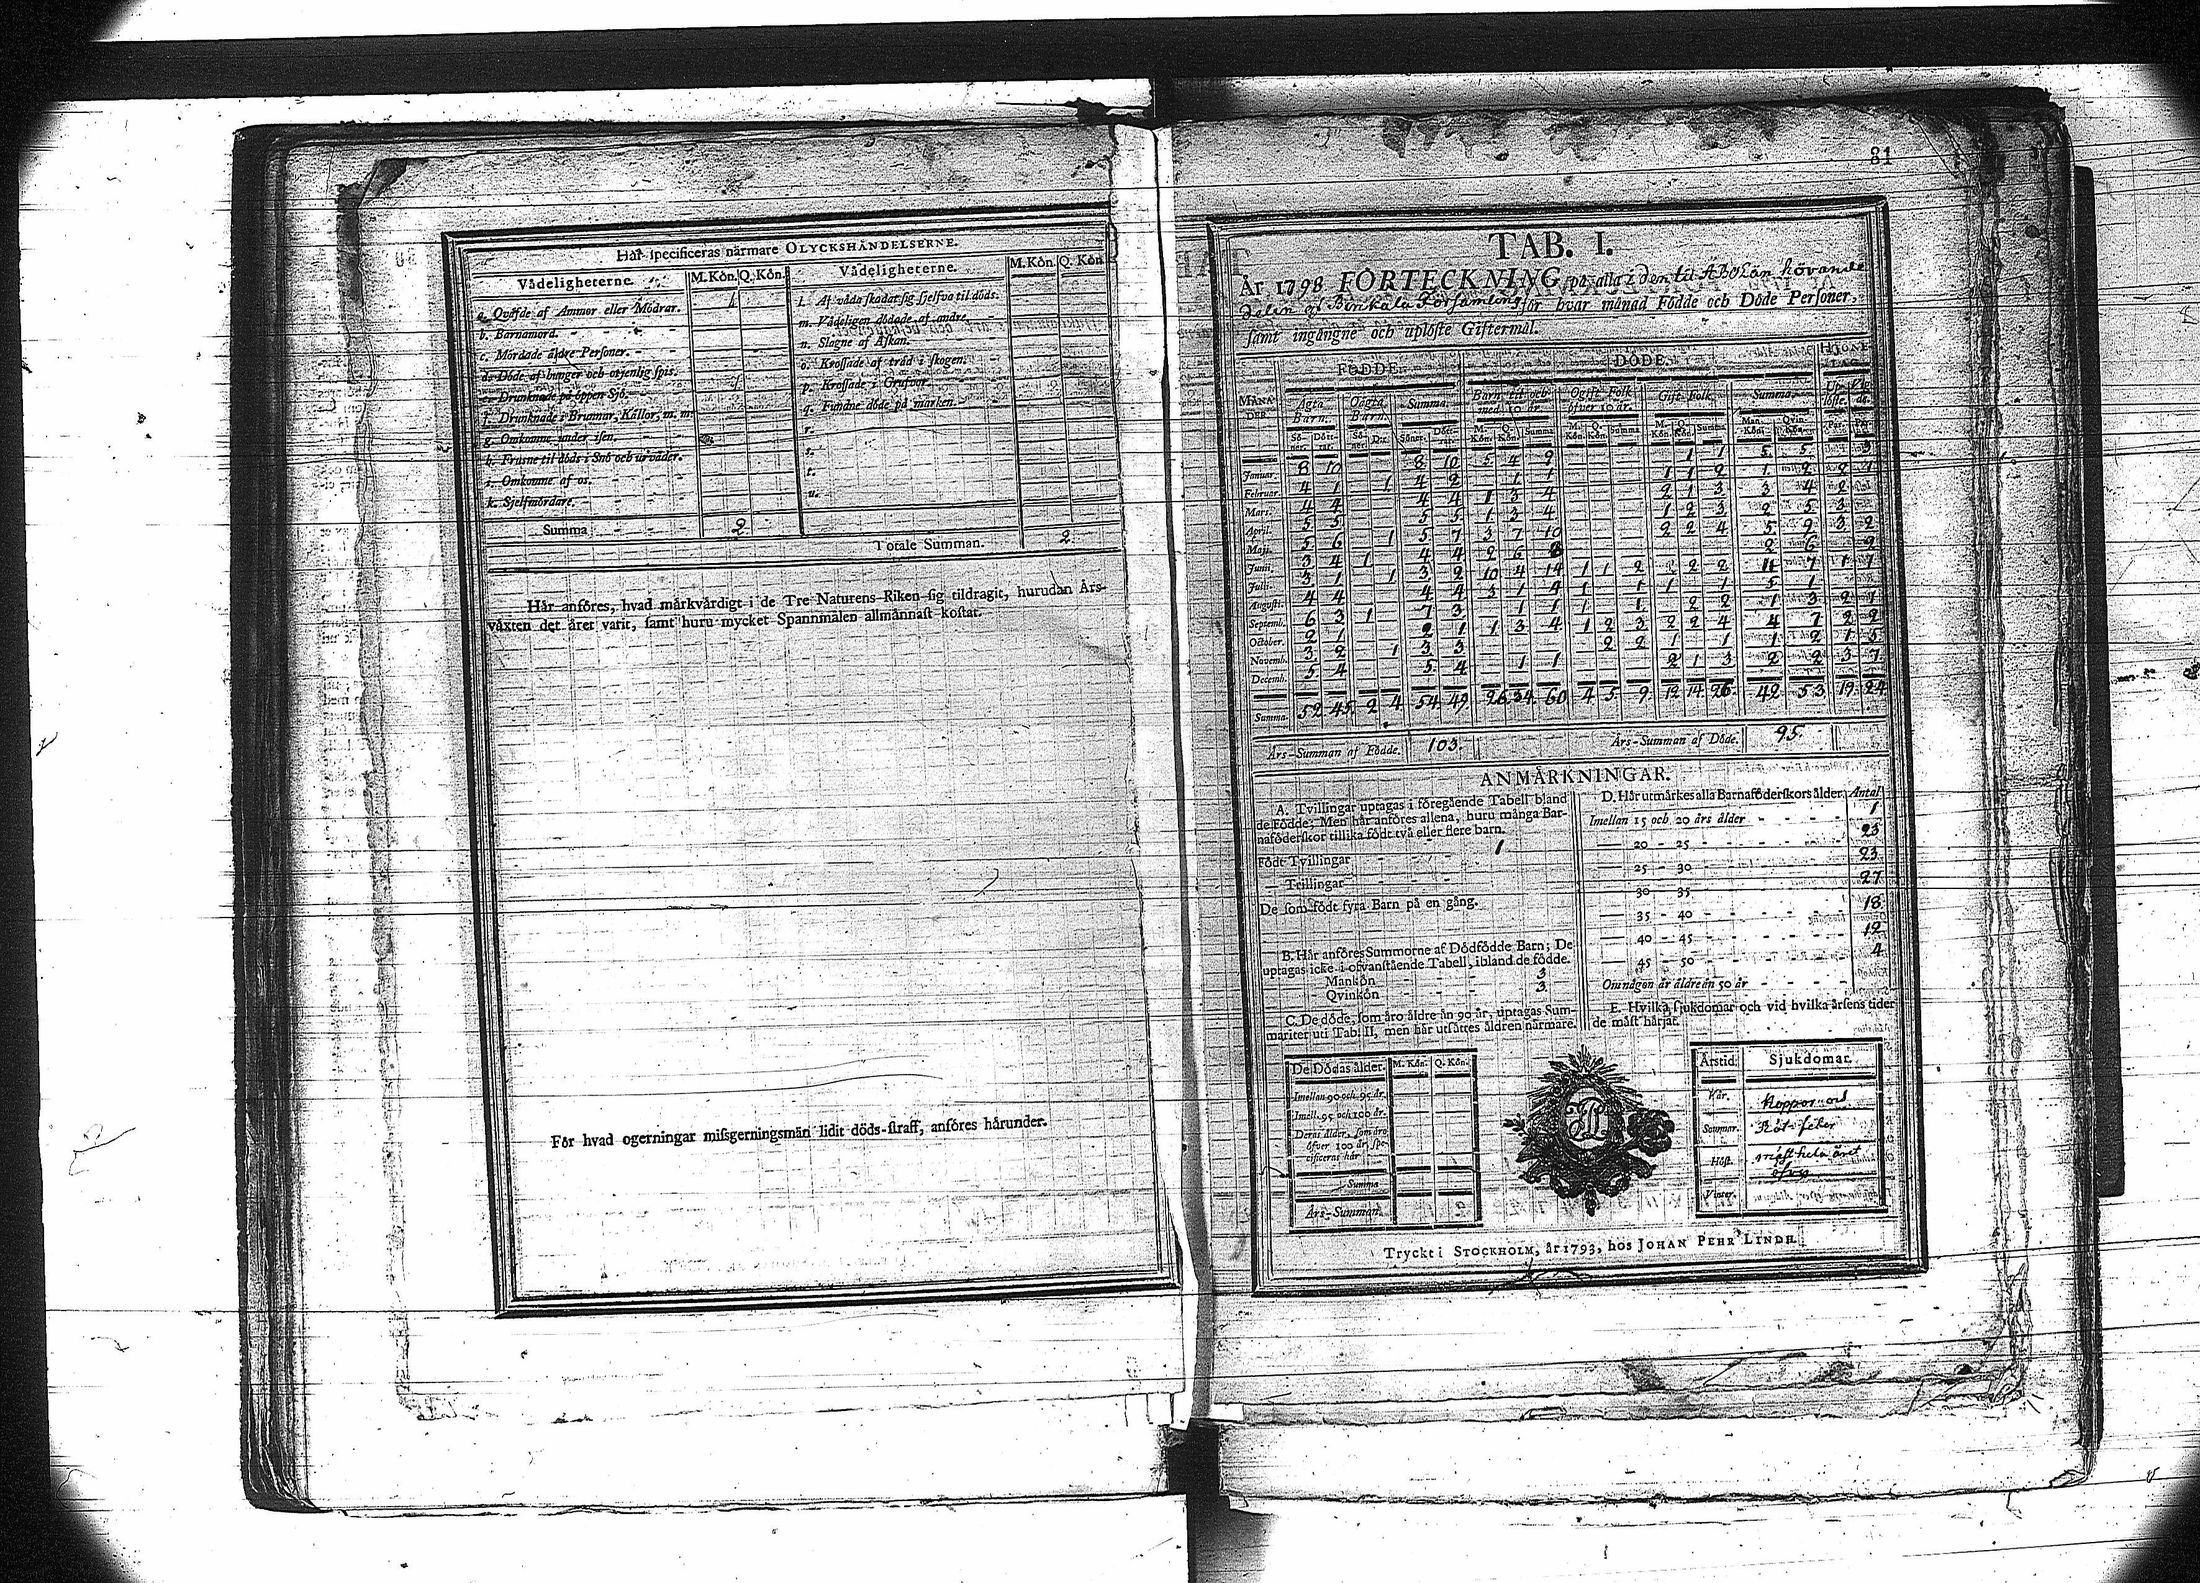 Här specificeras närmare OLYCKSHÄNDELSERNE.
Vådeligheterne. M. Kön. Q. Kön. Vådeligheterne. M. Kön. Q. Kön.
a. Qväfde af Ammor eller Mödrar. 1
b. Barnamord.
c. Mördade äldre Personer.
d. Döde af hunger och otjenlig spis.
e. Drunknade på öppen Sjö. 1
f. Drunknade i Brunnar, Källor, m. m.
g. Omkomne under isen.
h. Frusne til döds i Snö och urväder.
i. Omkomne af os.
k. Sjelfmördare.
Summa 2
l. Af våda skadat sig sjelfva til döds.
m. Vådeligen dödade af andre.
n. Slagne af Åskan.
o. Krossade af träd i skogen.
p. Krossade i Grufvor.
q. Fundne döde på marken.
r.
s.
t.
u.
Totale Summan. 2
Här anföres, hvad märkvärdigt i de Tre Naturens Riken sig tildragit, hurudan Års-
växten det året varit, samt huru mycket Spannmålen allmännast kostat.
För hvad ogerningar missgerningsmän lidit döds-straff, anföres härunder.
81
TAB. I.
År 1798 FÖRTECKNING på alla i den til Åbo Län hörande
delen af Församling för hvar månad Födde och Döde Personer,
samt ingångne och uplöste Giftermål.
FÖDDE. DÖDE.
MÅNA-
DER
Ägta Barn. Oägta Barn. Summa. Barn til och med 10 år. Ogift Folk öfver 10 år. Gift Folk. Summa.
Januar. 8 10 8 10 5 4 9 1 1 5 5 3
Februar. 4 1 1 4 2 1 1 1 1 2 1 2 2 1
Mart. 4 4 4 4 1 3 4 2 1 3 3 4 2
April. 5 5 5 5 1 3 4 1 2 3 2 5 3
Maji. 5 6 1 5 7 3 7 10 2 2 4 5 9 3 2
Junii. 3 4 1 4 4 2 6 8 2 6 2
Julii. 3 1 1 3 2 10 4 14 1 1 2 2 2 11 7 1 7
Augusti. 4 4 4 4 3 1 4 1 1 1 1 5 1
Septemb. 6 3 1 7 3 1 1 1 1 2 2 1 3 2 1
October. 2 1 2 1 1 3 4 1 2 3 2 2 4 4 7 2 2
Novemb. 3 2 1 3 3 2 2 1 1 1 2 1 5
Decemb. 5 4 5 4 1 1 2 1 3 2 2 3 7
Summa. 52 45 2 4 54 49 26 34 60 4 5 9 12 14 26 42 53 19 24
Års-Summan af Födde. 103. Års-Summan af Döde. 95.
ANMÄRKNINGAR.
A. Tvillingar uptagas i föregående Tabell bland
de Födde; Men här anföres allena, huru många Bar-
naföderskor tillika födt två eller flere barn.
Födt Tvillingar 1
— Trillingar
De som födt fyra Barn på en gång.
B. Här anföres Summorne af Dödfödde Barn; De
uptagas icke i ofvanstående Tabell, ibland de födde.
Mankön 3
Qvinkön 3
C. De döde, som äro äldre än 90 år, uptagas Sum-
mariter uti Tab. II, men här utsättes åldren närmare.
De Dödas ålder. M. Kön. Q. Kön.
Imellan 90 och 95 år.
Imell. 95 och 100 år.
Deras ålder, som äro
öfver 100 år, spe-
cificeras här
Summa
Års-Summan.
D. Här utmärkes alla Barnaföderskors ålder. Antal
Imellan 15 och 20 års ålder 1
— 20 - 25 23
— 25 - 30 23
— 30 - 35 27
— 35 - 40 18
— 40 - 45 12
— 45 - 50 4
Om någon är äldre än 50 år
E. Hvilka sjukdomar och vid hvilka årsens tider
de mäst härjat.
Årstid Sjukdomar.
Vår. Koppor och
Sommar. Röt feber
Höst. mäst hela året
öfver
Vinter.
Tryckt i STOCKHOLM, år 1793, hos JOHAN PEHR LINDH.